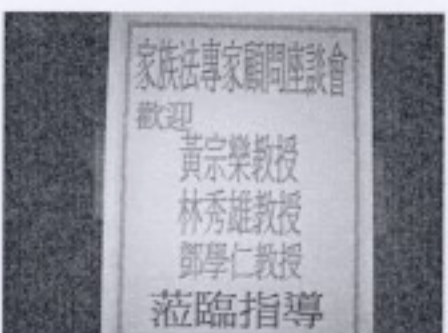 家族法專家顧問座談會
歡迎
黃宗樂教授
林秀雄教授
鄧學仁教授
蒞臨指導